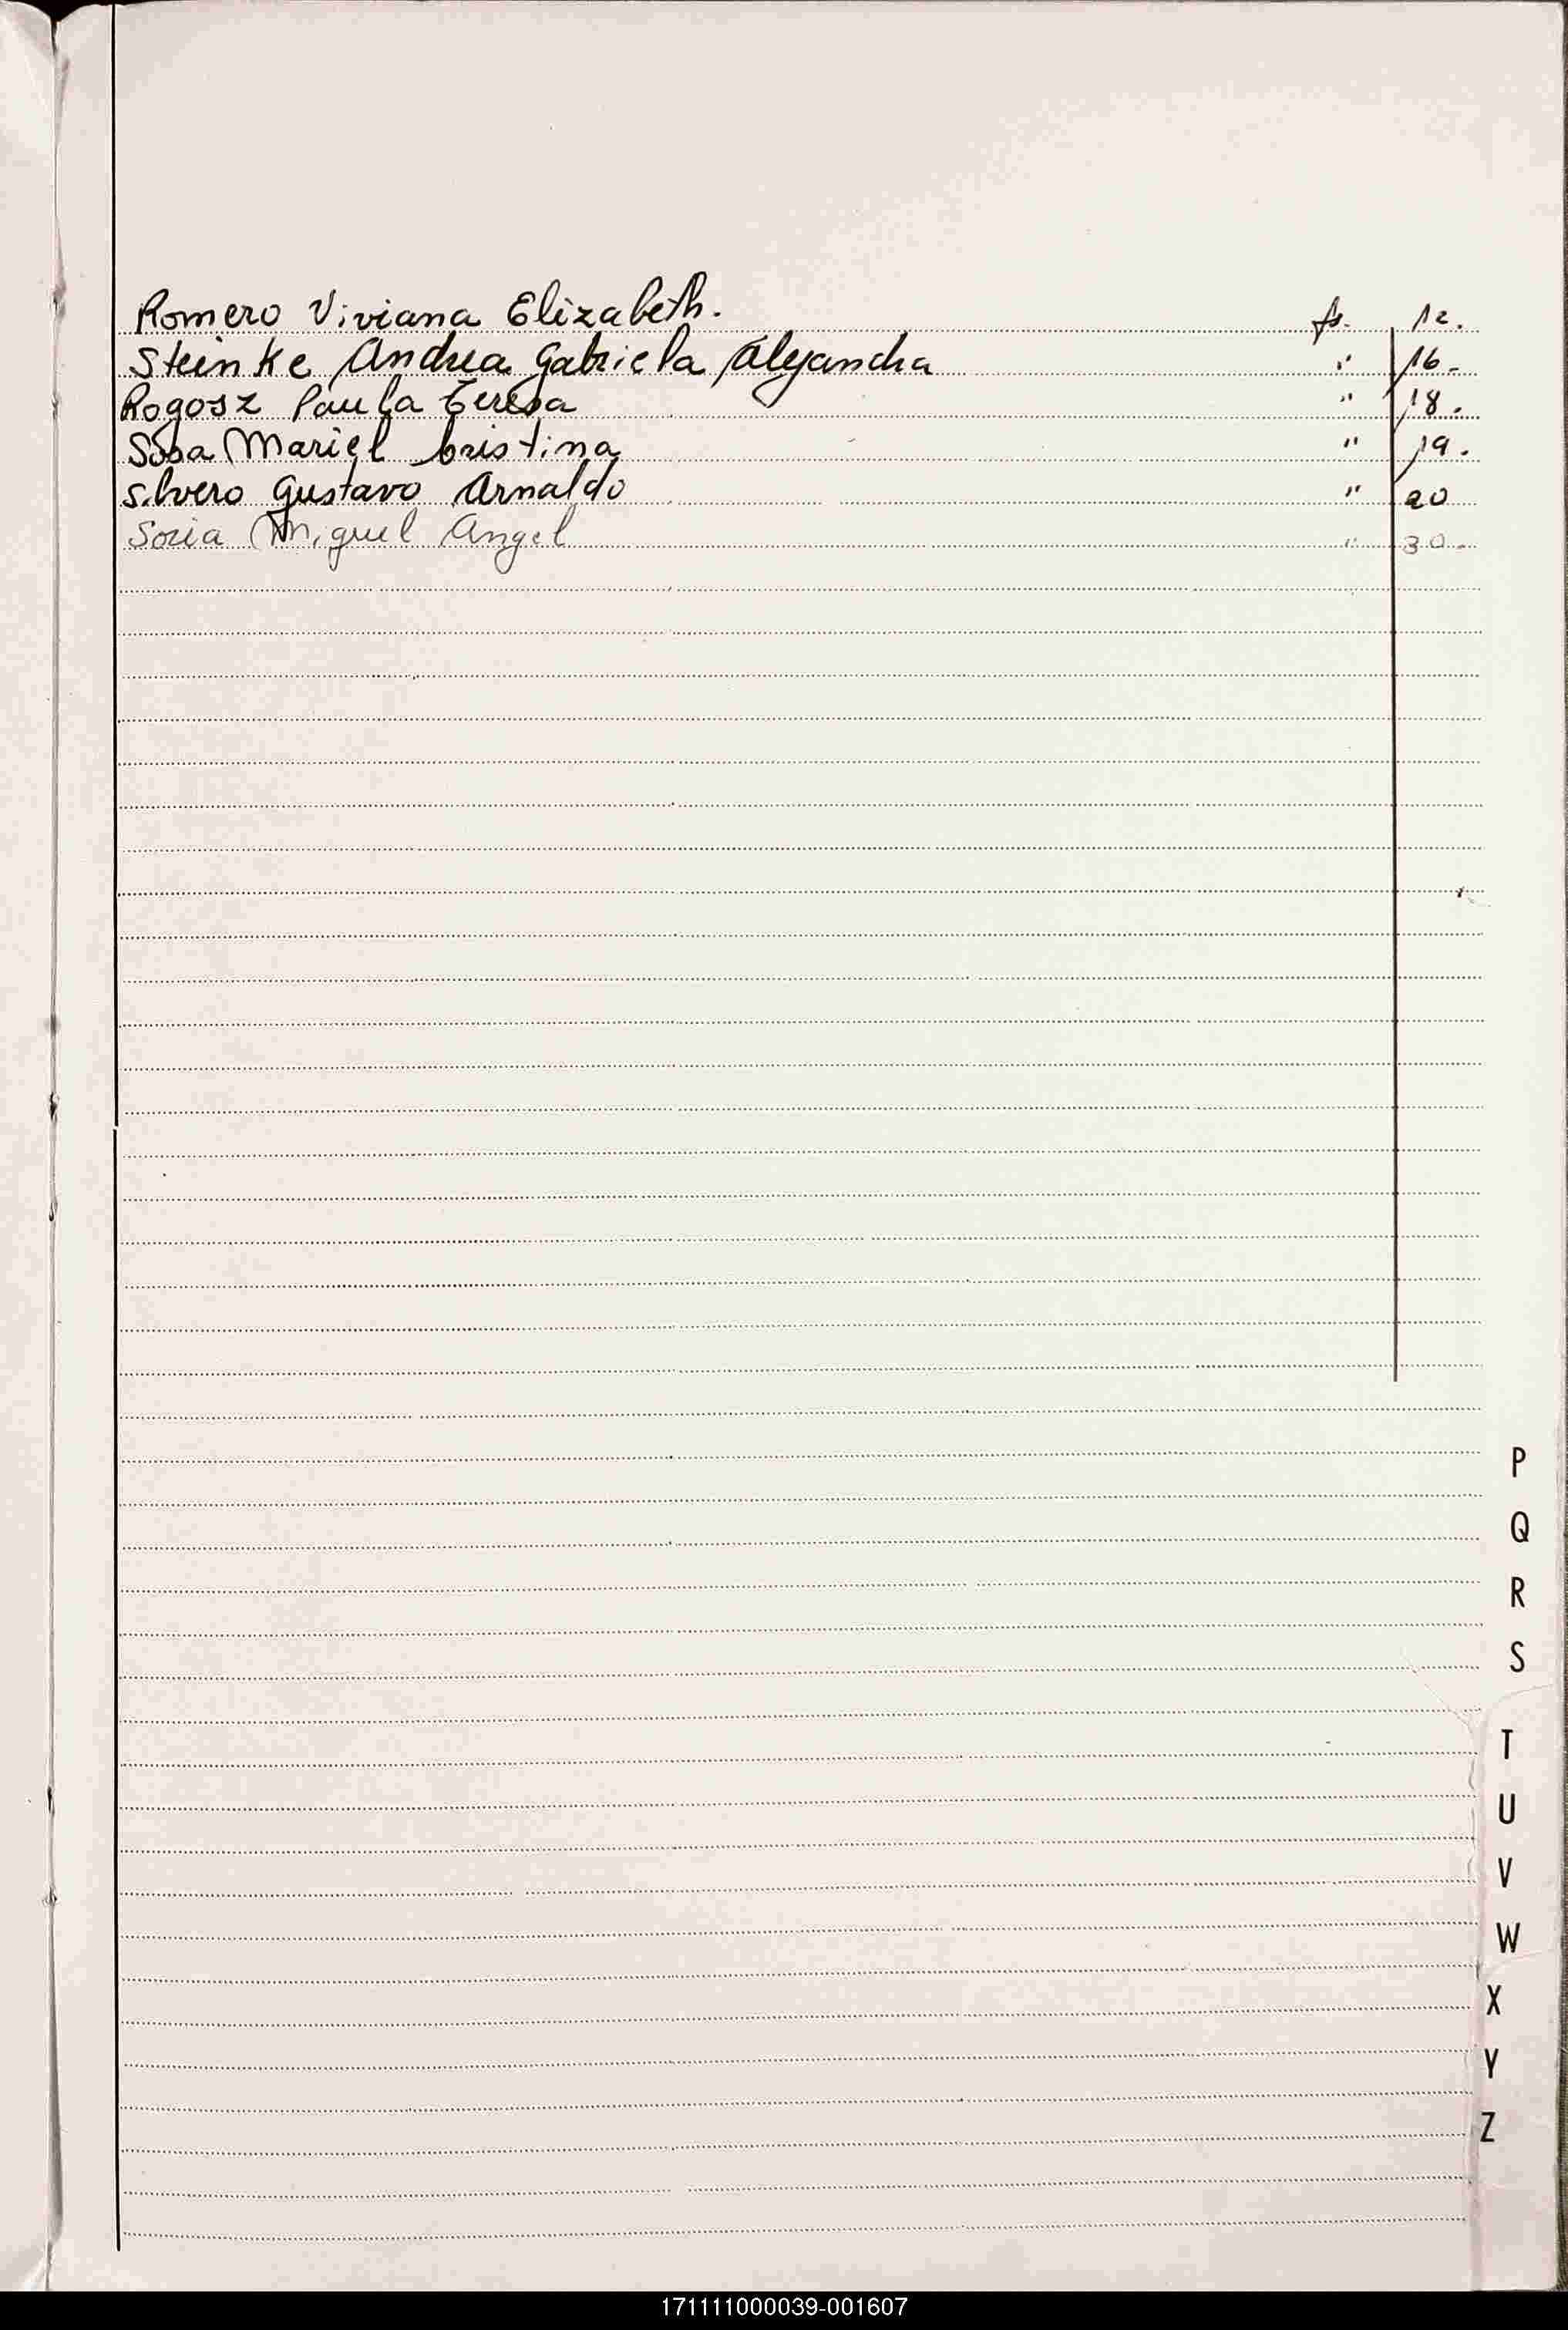 Romero Viviana Elizabeth. fs. 12.
Steinke Andrea Gabriela Alejandra " 16.
Rogosz Paula Teresa " 18.
Sosa Mariel Cristina " 19.
Silvero Gustavo Arnaldo " 20
Soria Miguel Angel " 30.
P
Q
R
S
T
U
V
W
X
Y
Z
171111000039-001607